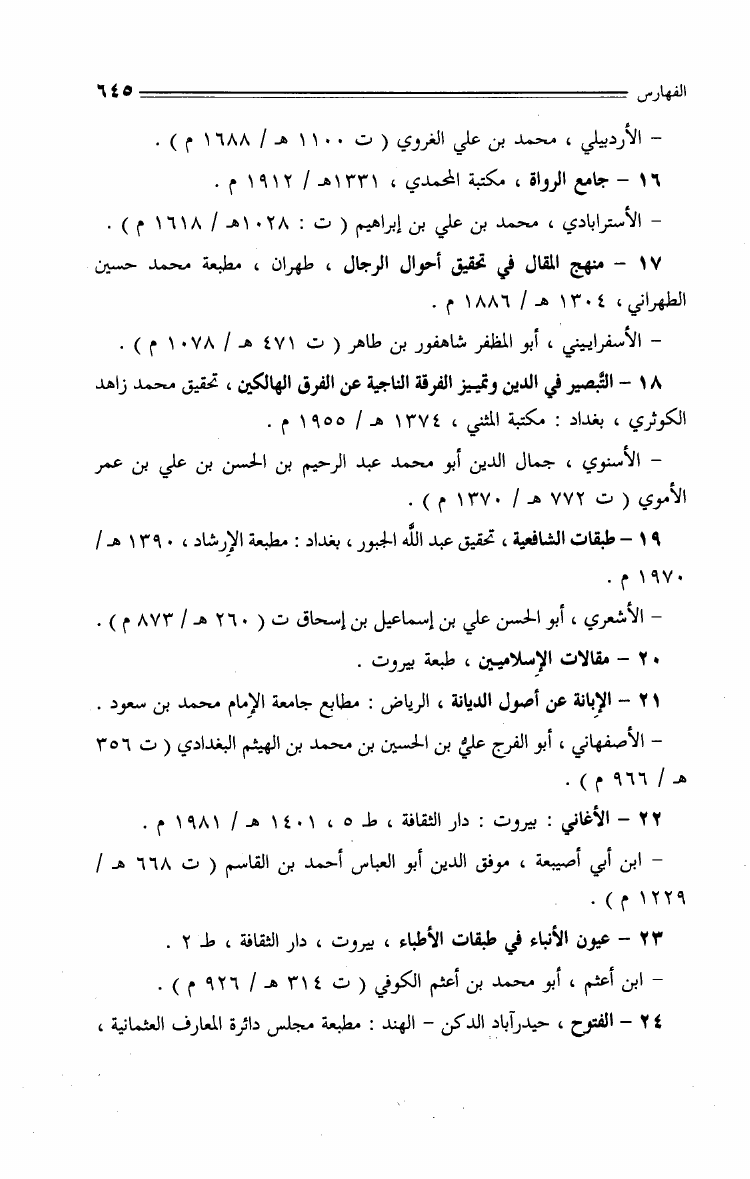 الفهارس ٦٤٥
– الأردبيلي ، محمد بن علي الغروي ( ت ١١٠٠ هـ / ١٦٨٨ م ) .
١٦ – جامع الرواة ، مكتبة المحمدي ، ١٣٣١هـ / ١٩١٢ م .
– الأسترابادي ، محمد بن علي بن إبراهيم ( ت : ١٠٢٨هـ / ١٦١٨ م ) .
١٧ – منهج المقال في تحقيق أحوال الرجال ، طهران ، مطبعة محمد حسين
الطهراني ، ١٣٠٤ هـ / ١٨٨٦ م .
– الأسفراييني ، أبو المظفر شاهفور بن طاهر ( ت ٤٧١ هـ / ١٠٧٨ م ) .
١٨ – التَّبصير في الدين وتمييز الفرقة الناجية عن الفرق الهالكين ، تحقيق محمد زاهد
الكوثري ، بغداد : مكتبة المثني ، ١٣٧٤ هـ / ١٩٥٥ م .
– الأسنوي ، جمال الدين أبو محمد عبد الرحيم بن الحسن بن علي بن عمر
الأموي ( ت ٧٧٢ هـ / ١٣٧٠ م ) .
١٩ – طبقات الشافعية ، تحقيق عبد اللَّه الجبور ، بغداد : مطبعة الإرشاد ، ١٣٩٠ هـ /
١٩٧٠ م .
– الأشعري ، أبو الحسن علي بن إسماعيل بن إسحاق ت ( ٢٦٠ هـ / ٨٧٣ م ) .
٢٠ – مقالات الإسلاميين ، طبعة بيروت .
٢١ – الإبانة عن أصول الديانة ، الرياض : مطابع جامعة الإمام محمد بن سعود .
– الأصفهاني ، أبو الفرج عليُّ بن الحسين بن محمد بن الهيثم البغدادي ( ت ٣٥٦
هـ / ٩٦٦ م ) .
٢٢ – الأغاني : بيروت : دار الثقافة ، ط ٥ ، ١٤٠١ هـ / ١٩٨١ م .
– ابن أبي أصيبعة ، موفق الدين أبو العباس أحمد بن القاسم ( ت ٦٦٨ هـ /
١٢٢٩ م ) .
٢٣ – عيون الأنباء في طبقات الأطباء ، بيروت ، دار الثقافة ، ط ٢ .
– ابن أعثم ، أبو محمد بن أعثم الكوفي ( ت ٣١٤ هـ / ٩٢٦ م ) .
٢٤ – الفتوح ، حيدرآباد الدكن – الهند : مطبعة مجلس دائرة المعارف العثمانية ،